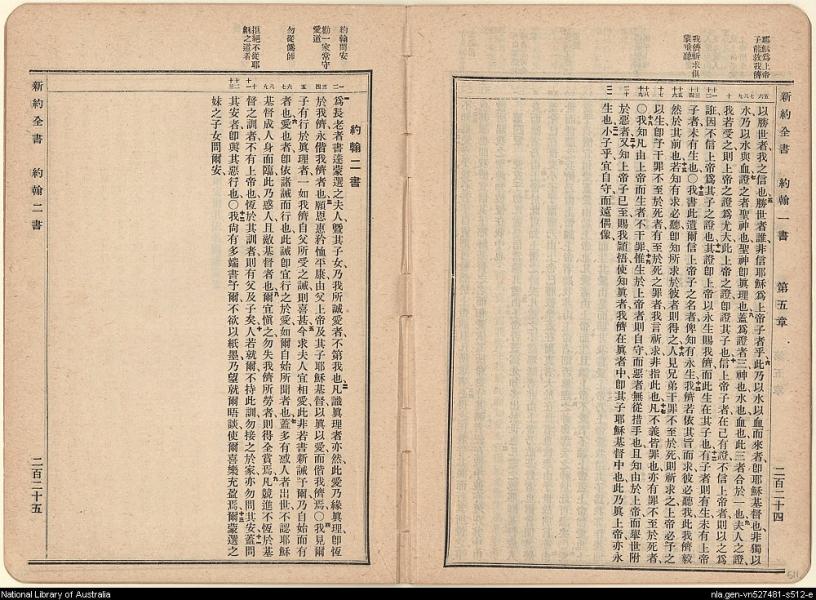 新約全書　約翰一書　第五章　二百二十四
耶穌爲上帝
子能救我儕
我儕祈求俱
蒙垂聽
以勝世者我之信也勝世者誰非信耶穌爲上帝子者乎此乃以水以血而來者卽耶穌基督也非獨以
水乃以水與血證之者聖神也聖神卽眞理也蓋爲證者三神也水也血也此三者合於一也夫人之證
我若受之則上帝之證爲尤大此上帝之證卽證其子也信上帝子者在己有證不信上帝者則以之爲
誑因不信上帝爲其子之證也其證卽上帝以永生賜我儕而此生在其子也有子者則有生未有上帝
子者未有生也〇我書此遺爾信上帝子之名者俾知有永生我儕若依其旨而求彼必聽我此我儕毅
然於其前也若知有求必聽卽知所求於彼者則得之人見兄弟干罪不至於死則祈求之上帝必予之
以生卽予干罪不至於死者有至於死之罪者我言祈求非指此也凡不義皆罪也亦有罪不至於死者
〇我知凡由上帝而生者不干罪惟生於上帝者則自守而惡者無從措手也且知由於上帝而舉世附
於惡者又知上帝子已至賜我穎悟使知眞者我儕在眞者中卽其子耶穌基督中也此乃眞上帝亦永
生也小子乎宜自守而遠偶像
約翰問安
勸一家常守
愛道
勿從僞師
拒絕不從耶
穌之道者
約翰二書
爲長老者書達蒙選之夫人曁其子女乃我所誠愛者不第我也凡識眞理者亦然此愛乃緣眞理卽恆
於我儕永偕我儕者也願恩惠矜恤平康由父上帝及其子耶穌基督以眞以愛而偕我儕焉〇我見爾
子有行於眞理者一如我儕自父所受之誡則喜甚今求夫人宜相愛此非若書新誡予爾乃自始而有
者也愛也者卽依諸誡而行也此誡卽宜行之於愛如爾自始所聞者也蓋多有惑人者出世不認耶穌
基督成人身而臨此乃惑人且敵基督者也爾宜愼之勿失我儕所勞者則得全賞焉凡競進不恆於基
督之訓者不有上帝也恆於其訓者則有父及子矣人若就爾不持此訓勿接之於家亦勿問其安蓋問
其安者卽與其惡行也〇我尙有多端書予爾不欲以紙墨乃望就爾晤談使爾喜樂充盈焉爾蒙選之
妹之子女問爾安
新約全書　約翰二書　二百二十五
National Library of Australia
nla.gen-vn527481-s512-e